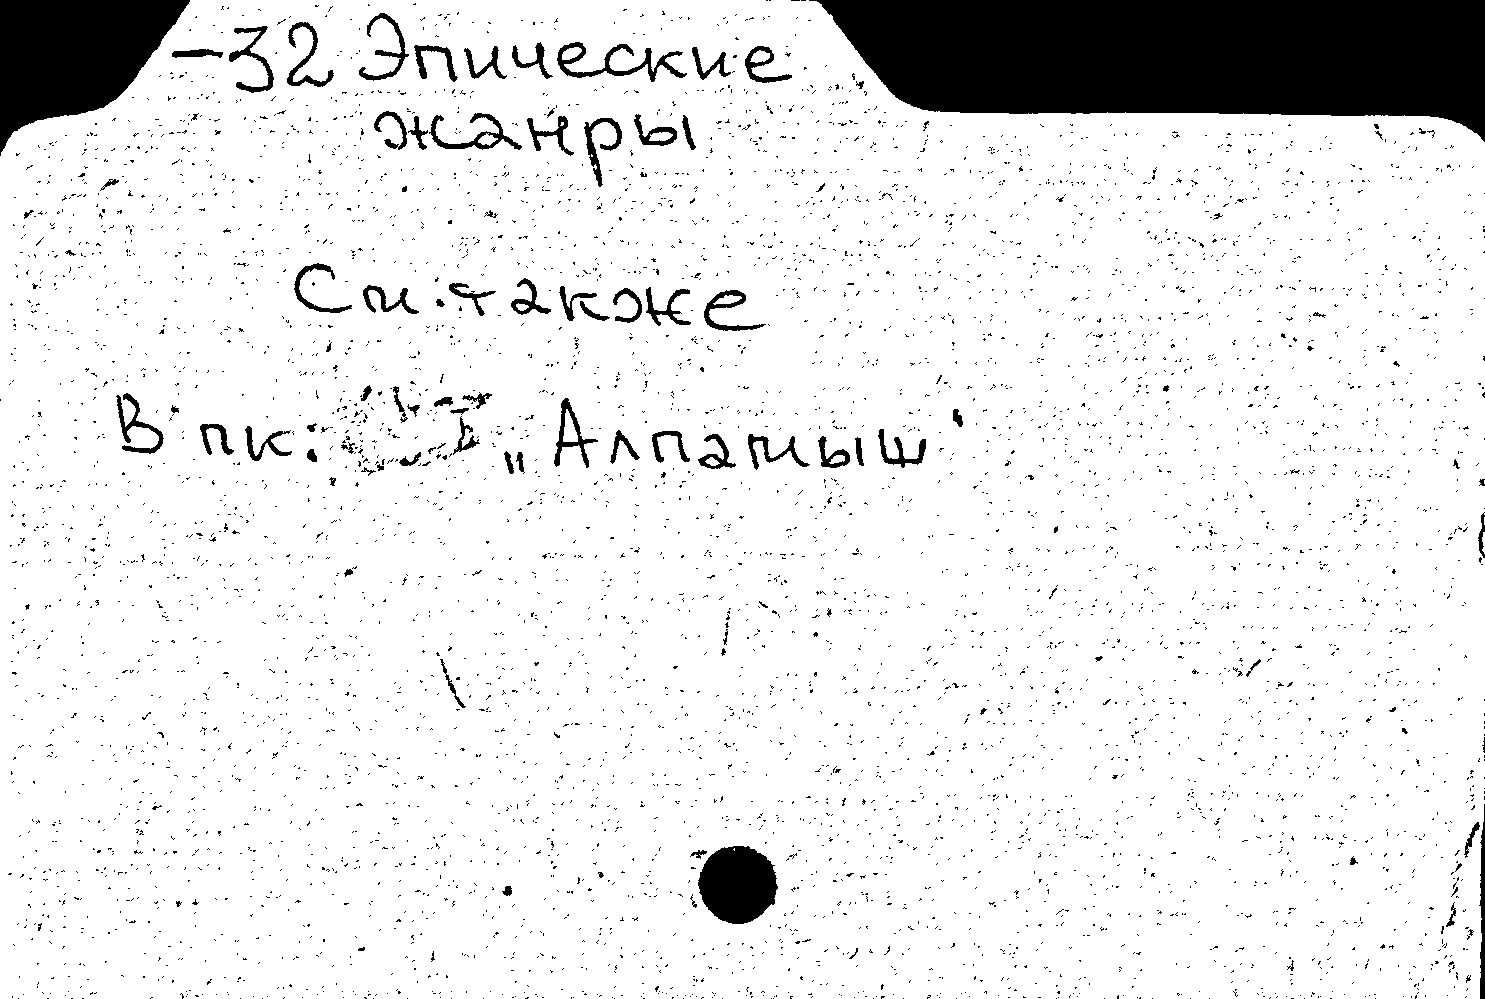 -32 Эпические
жанры
См. также
В пк: „Алпамыш“